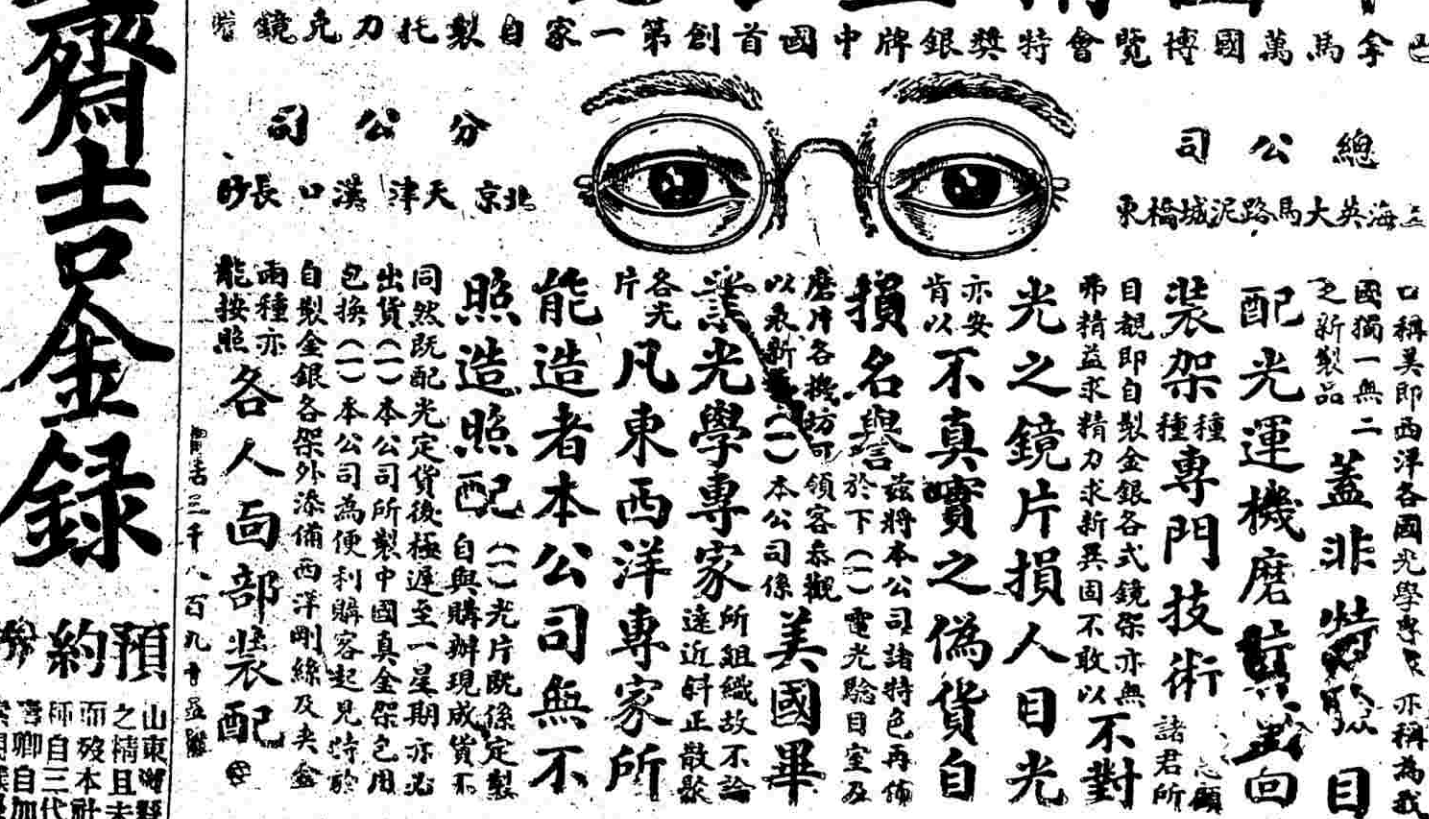 巴拿馬萬國博覽會特獎銀牌中國首創第一家自製托力克鏡
總公司
上海英大馬路泥城橋東
分公司
北京 天津 漢口 長沙
口稱美即西洋各國光學專家亦稱為我
國獨一無二
之新製品
蓋非特 目
配光運機磨 向
裝架
種種
專門技術
諸君所
忠顧
目覩即自製金銀各式鏡架亦無
弗精益求精力求新異固不敢以
不對
光之鏡片損人目光
亦安
肯以
不真實之偽貨自
損名譽
茲將本公司諸特色再佈
於下(一)電光驗目室及
磨片各機坊可領客參觀
以表新 (一)本公司係
美國畢
業光學專家
所組織故不論
遠近斜正散聚
各光
片
凡東西洋專家所
能造者本公司無不
照造照配
(一)光片既係定製
自與購辦現成貨不
同然既配光定貨後極遲至一星期亦必
出貨(一)本公司所製中國真金架包用
包換(一)本公司為便利購客起見特於
自製金銀各架外添備西洋剛絲及夾金
兩種亦
能按照
各人面部裝配
電話三千八百九十五號
齋吉金錄
預約
山東濰縣
之精且未
而歿本社
自三代
卿自加